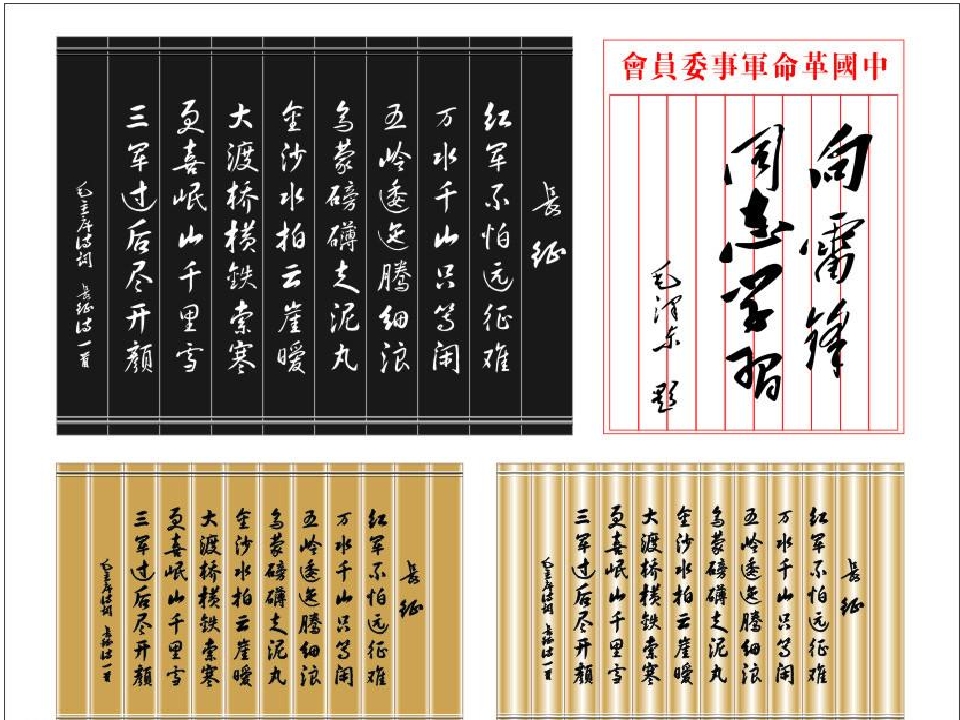 长征
红军不怕远征难
万水千山只等闲
五岭逶迤腾细浪
乌蒙磅礴走泥丸
金沙水拍云崖暖
大渡桥横铁索寒
更喜岷山千里雪
三军过后尽开颜
毛主席诗词 长征诗一首
中國革命軍事委員會
向雷锋
同志学习
毛泽东 题
长征
红军不怕远征难
万水千山只等闲
五岭逶迤腾细浪
乌蒙磅礴走泥丸
金沙水拍云崖暖
大渡桥横铁索寒
更喜岷山千里雪
三军过后尽开颜
毛主席诗词 长征诗一首
长征
红军不怕远征难
万水千山只等闲
五岭逶迤腾细浪
乌蒙磅礴走泥丸
金沙水拍云崖暖
大渡桥横铁索寒
更喜岷山千里雪
三军过后尽开颜
毛主席诗词 长征诗一首